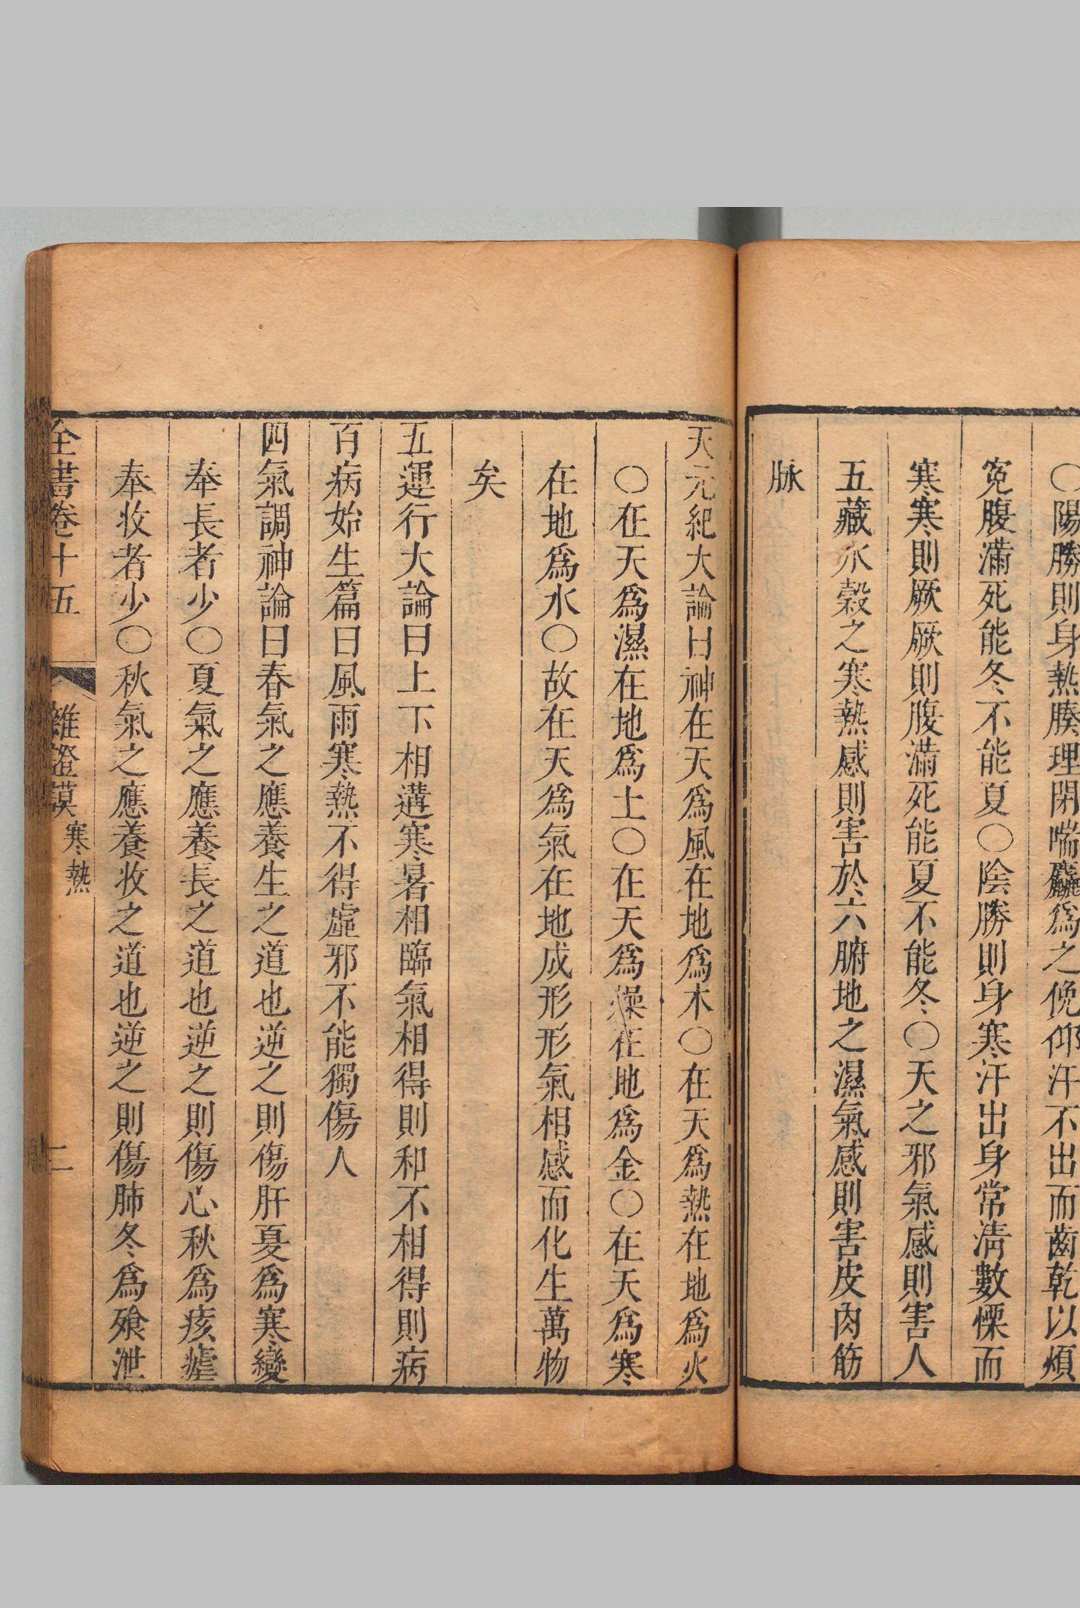 〇陽勝則身熱腠理閉喘麤爲之俛仰汗不出而齒乾以煩
寃腹滿死能冬不能夏〇陰勝則身寒汗出身常淸數慄而
寒寒則厥厥則腹滿死能夏不能冬〇天之邪氣感則害人
五藏水穀之寒熱感則害於六腑地之濕氣感則害皮肉筋
脉
天元紀大論曰神在天爲風在地爲木〇在天爲熱在地爲火
〇在天爲濕在地爲土〇在天爲燥在地爲金〇在天爲寒
在地爲水〇故在天爲氣在地成形形氣相感而化生萬物
矣
五運行大論曰上下相遘寒暑相臨氣相得則和不相得則病
百病始生篇曰風雨寒熱不得虛邪不能獨傷人
四氣調神論曰春氣之應養生之道也逆之則傷肝夏爲寒變
奉長者少〇夏氣之應養長之道也逆之則傷心秋爲痎瘧
奉收者少〇秋氣之應養收之道也逆之則傷肺冬爲飱泄
全書卷十五 雜證謨 寒熱 二